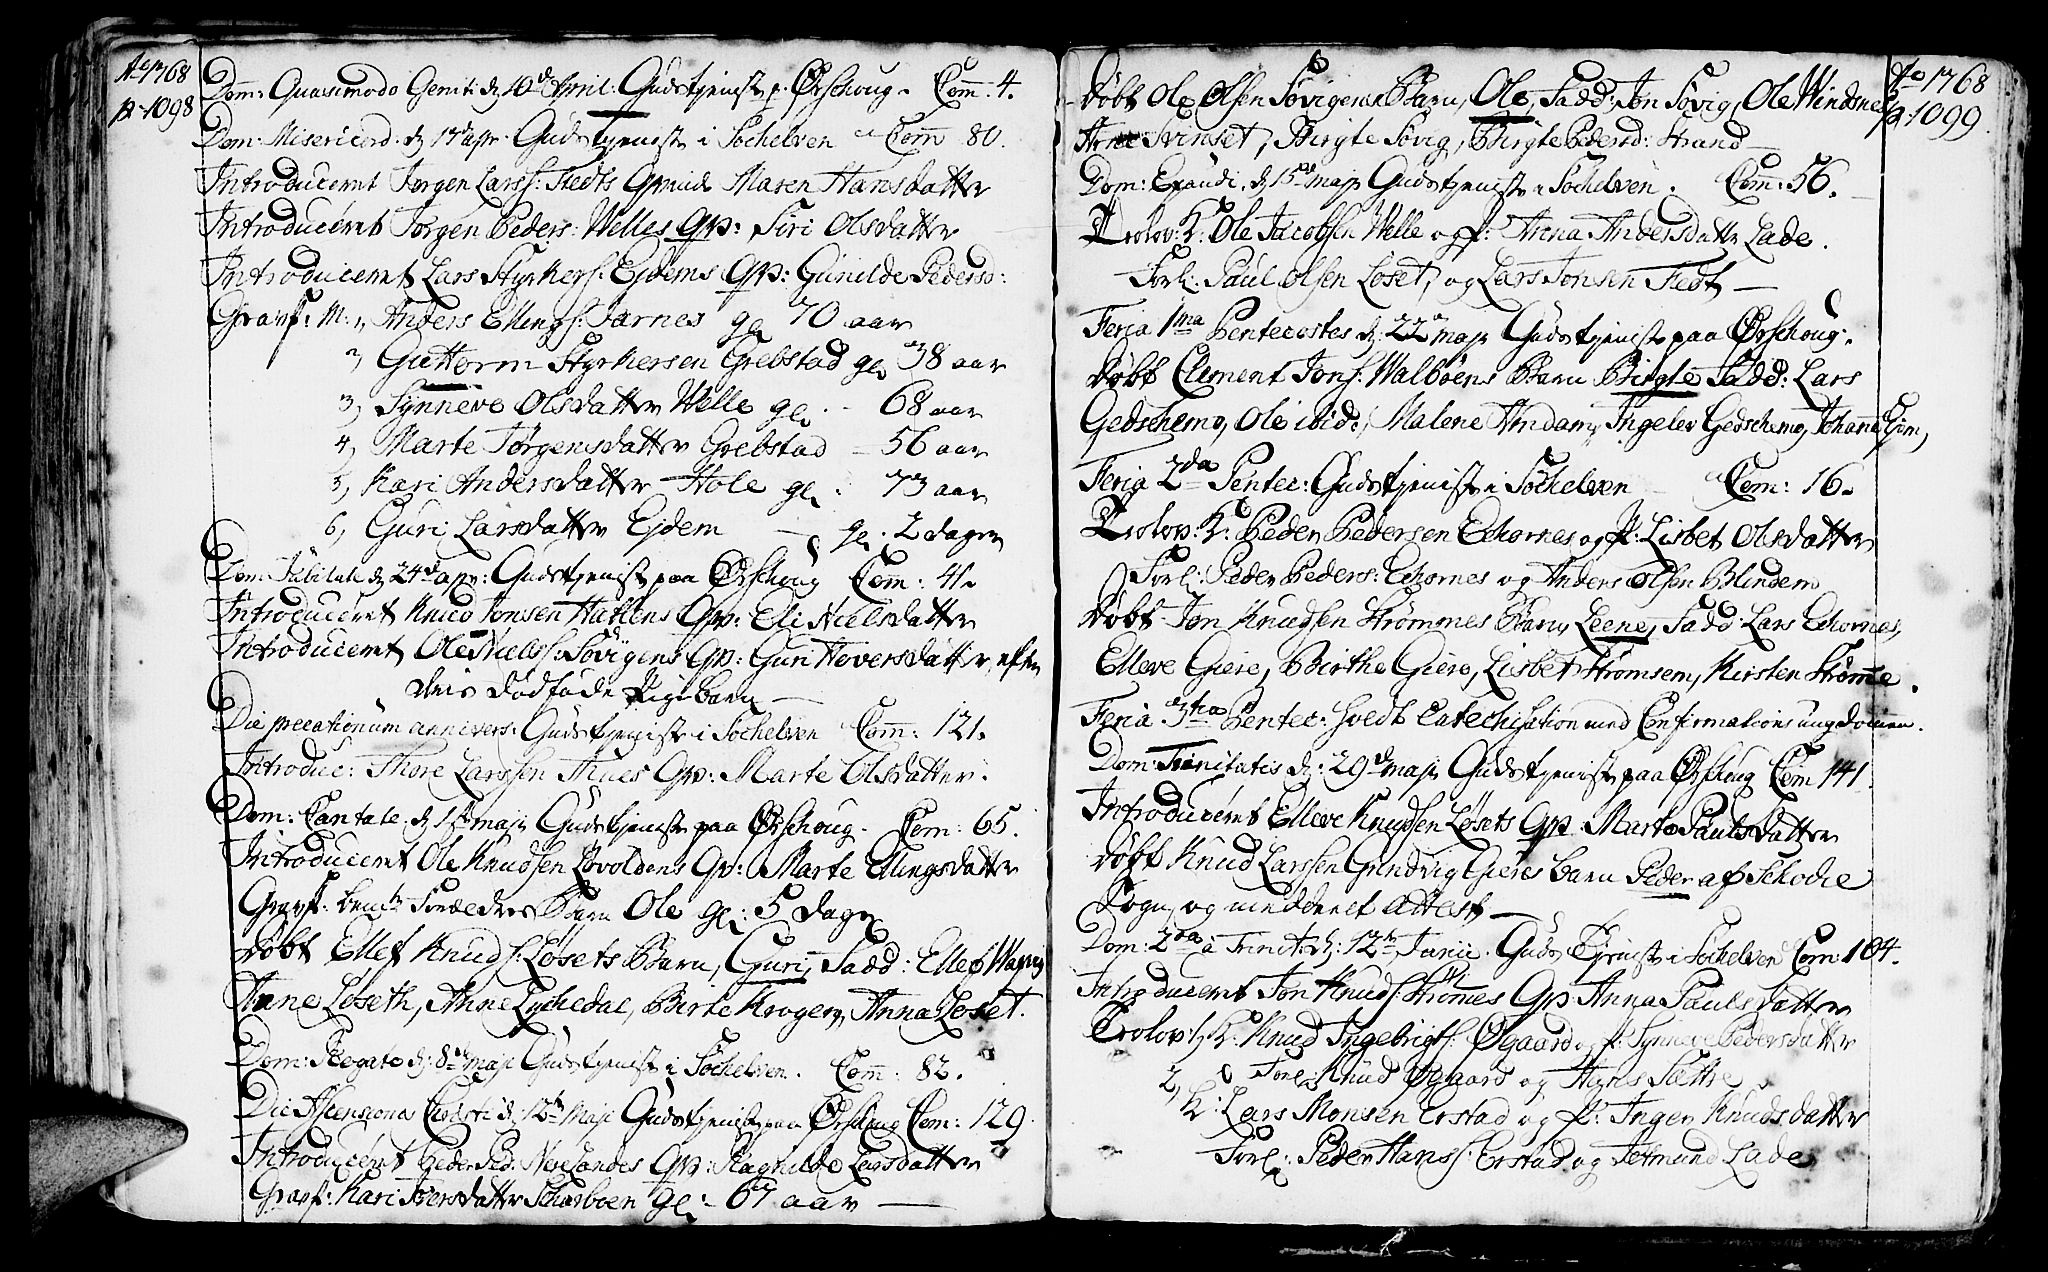 Ao 1768
p. 1098
Dom: Quasimodo Genit: d. 10de April: Gudstjenist p. Ørschoug. Com: 4.
Dom: Misericord. d. 17 apr. Gudstjenist i Sochelven Com 80.
Introduceret Jørgen Larss: Fedts Qvinde Maren Hansdatter
Introduceret Jørgen Peders: Welles Qv: Siri Olsdatter
Introduceret Lars Styrkers: Ejdems Qv: Gunilde Pedersd:
Gravf: M: 1, Anders Ellings: Jarnes gl 70 aar
2, Guttorm Styrkersen Grebstad gl 38 aar
3, Synneve Olsdatter Welle gl. - 68 aar
4, Marte Jørgensdatter Grebstad - 56 aar
5, Kari Andersdatter Hole gl: 73 aar
6, Guri Larsdatter Ejdem - gl. 2 dager
Dom: Jubilate d. 24de apr: Gudstjenist paa Ørschoug Com: 41.
Introduceret Knud Jonsen Hatlens Qv: Eli Nielsdatter
Introduceret Ole Niels: Søvigens Qv: Guri Hoversdatter, efter
deris dødføde Pigebarn
Die precationum annivers: Gudstjenist i Sochelven Com: 121.
Introduc: Thore Larssen Thues Qv: Marte Olsdatter.
Dom: Cantate. d. 1ste maji Gudstjenist paa Ørschoug. Com: 65.
Introduceret Ole Knudsen Løvoldens Qv: Marte Ellingsdatter
Gravf: bemte Foreldres Barn Ole gl: 5 dage
Døbt Ellef Knuds: Løsets Barn, Guri, Fadd: Ellef Wagvig
Anne Løseth, Anne Lychedal, Birte Krogen, Anna Løset.
Dom: Rogate d: 8de maji Gudstjenist i Sochelven. Com: 82.
Die Ascensiona Christi d: 12te Maji Gudstjenist paa Ørschoug Com: 129
Introduceret Peder Ped: Neresandes Qv: Ragnilde Larsdatter
Gravf: Kari Iversdatter Scharboen gl: 67 aar
Ao 1768
p. 1099
døbt Ole Olsen Søvigens Barn, Ole, Fadd: Jon Søvig, Ole Windsnes
Svinset, Birgte Søvig, Birgte Pedersd: Strand
Dom: Exaudi, d. 15de maji Gudstjenist i Sochelven. Com: 56.
Trolov: K: Ole Jacobsen Welle og p: Anna Andersdatter Lade.
Forl: Paul Olsen Løset, og Lars Jonsen Fedt
Feria 1ma Pentecostes d: 22 maji Gudstjenist paa Ørschoug.
Døbt Clement Jons: Walbøens Barn Birgte Fadd: Lars
Gedschemo, Ole ibid:, Malene Amdam, Ingelev Gedschemo, Johanne
Feria 2da Pentec: Gudstjenist i Sochelven Com: 16.
Trolov: K: Peder Pedersen Echornes og p: Lisbet Olsdatter
Forl: Peder Peders: Echornes og Anders Olsen Blindem
Døbt Jon Knudsen Strømmes Barn Leene, Fadd Lars Echornes,
Elleve Giere, Birthe Giere, Lisbet Strømsem, Kirsten Strømme.
Feria 3tia Pentec: holdt Catechisation med Confirmations ungdomen.
Dom: Trinitatis d: 29de maji Gudstjenist paa Ørschoug Com 141
Introduceret Elleve Knudsen Løsets Qv: Marte Paulsdatter
Døbt Knud Larssen Grindvig Gieres barn Peder af Schodie
Sogn, og meddelet Attest
Dom: 2da à Trinit: d: 12te Junii. Guds Tjenist i Sochelven Com 104.
Introduceret Jon Knuds: Strømmes Qv: Anna Paulsdatter
Trolov: 1, K: Knud Ingebrigts: Øgaard og p: Synneve Pedersdatter
Forl: Knud Øgaard og Hans Sættre
2, K: Lars Monsen Erstad og p: Inger Knudsdatter
Forl: Peder Hanss: Erstad og Jetmund Lade